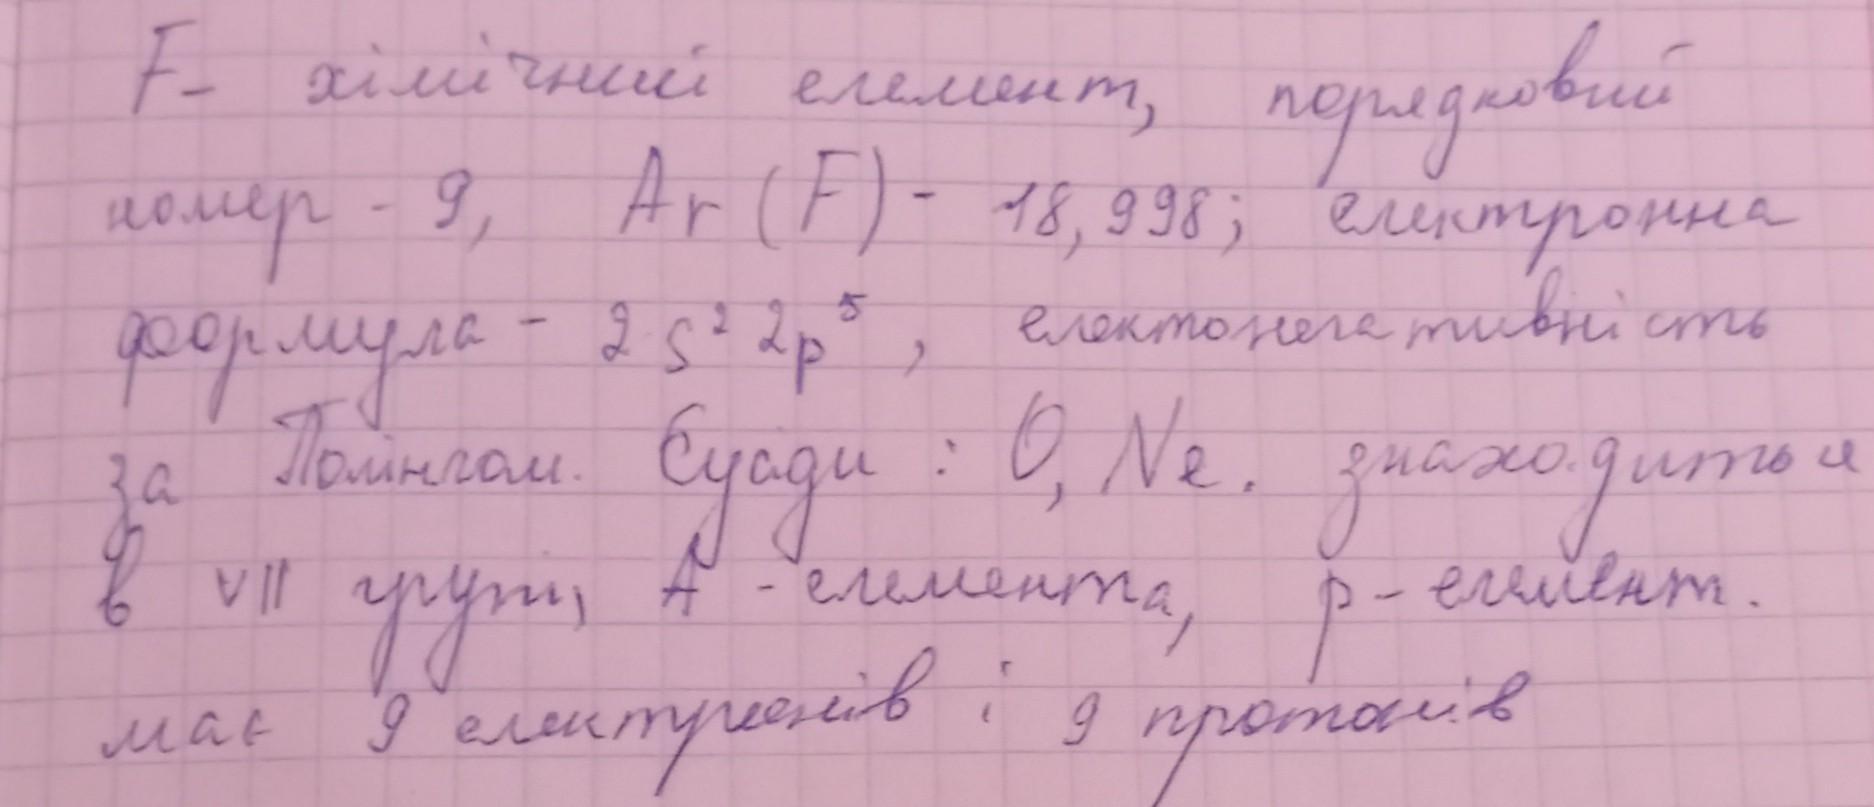 F- хімічний елемент, порядковий
номер - 9, Ar (F) - 18,998; електронна
формула - 2 s² 2p⁵, електонегативність
за Полінгом. Сусіди : O, Ne. знаходиться
в VII групі, А - елемента, р - елемент.
має 9 електронів і 9 протонів